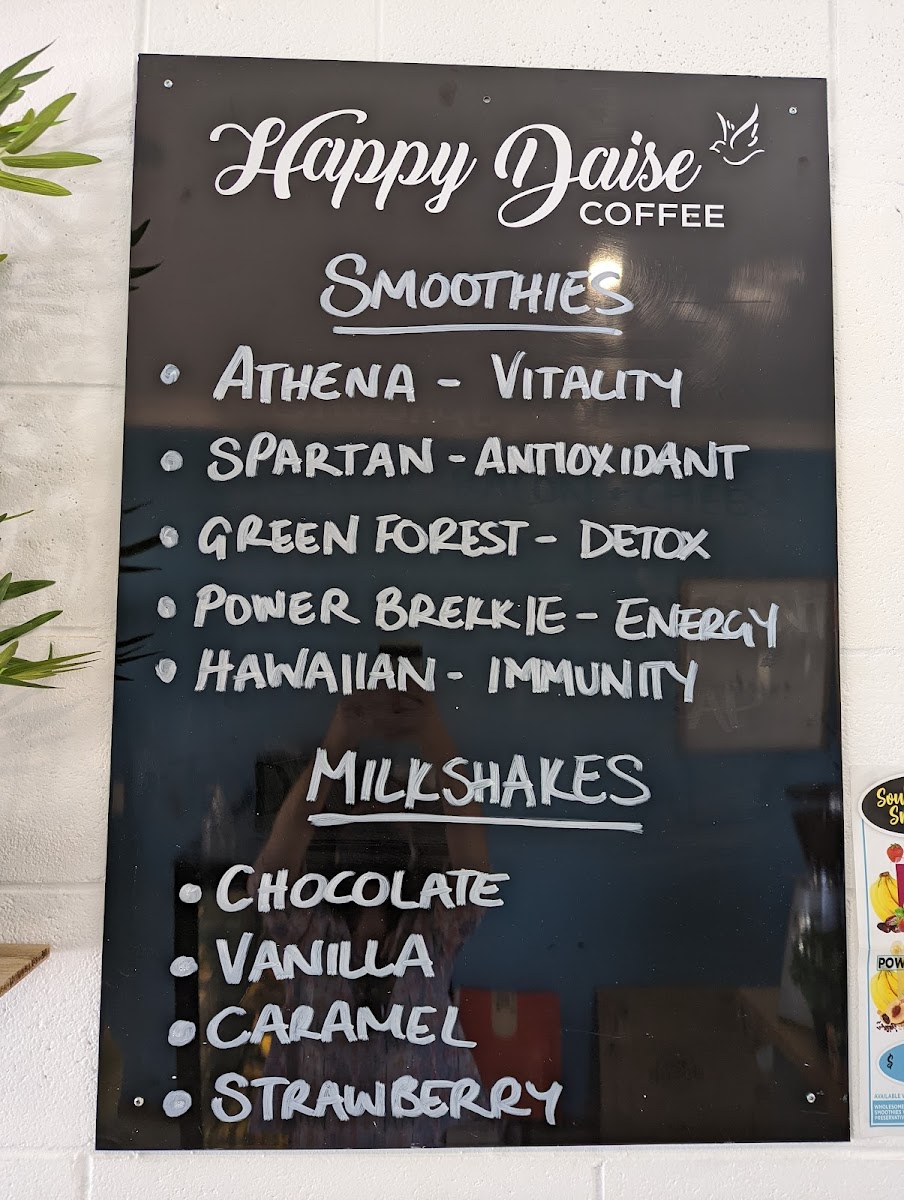 Happy Daise
COFFEE
SMOOTHIES
• ATHENA - VITALITY
• SPARTAN - ANTIOXIDANT
• GREEN FOREST - DETOX
• POWER BREKKIE - ENERGY
• HAWAIIAN - IMMUNITY
MILKSHAKES
• CHOCOLATE
• VANILLA
• CARAMEL
• STRAWBERRY
POW
$
AVAILABLE
WHOLESOME
SMOOTHIES